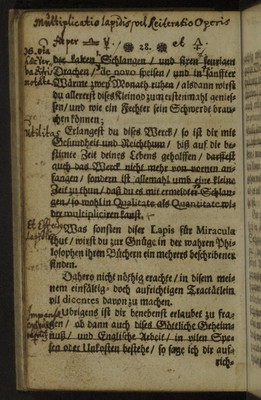 Multiplicatio lapidis, vel Reiteratio Operis
❋ 28. ❋ et
die kalten Schlangen / und ihren feurigen
Drachen / de novo speisen / und in sanffter
Wärme zwey Monath ruhen / alsdann wirst
du allererst dises Kleinod zum erstenmahl geniessen /
und wie ein Fechter sein Schwerdt brauchen
können;
Utilitas
Erlangest du dises Werck / so ist dir mit
Gesundheit und Reichthum / biß auf die bestimte
Zeit deines Lebens geholffen / darffest
auch das Werck nicht mehr von vornen anfangen
/ sondern ist allemahl umb eine kleine
Zeit zu thun / daß du es mit ermeldter Schlangen
/ so wohl in Qualitate als Quantitate wider
multipliciren kanst.
Was sonsten diser Lapis für Miracula
thut / wirst du zur Gnüge in der wahren Philosophen
ihren Büchern ein mehrers beschribener
finden.
Dahero nicht nöthig erachte / in disem meinem
einfältig- doch aufrichtigen Tractätlein
vil dicentes davon zu machen.
Ubrigens ist dir benebenst erlaubet zu fragen
/ ob dann auch dises Göttliche Geheimnuß
/ und Englische Arbeit / in vilen Spesen
oder Unkosten bestehe / so sage ich dir auf-
rich-